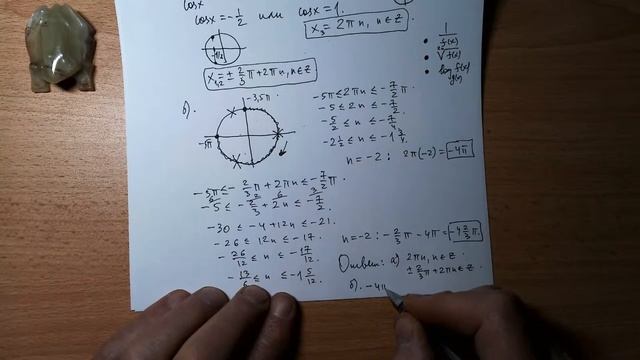 cosx
cosx = -1/2 или cosx = 1.
x₃ = 2πn, n∈z
x₁,₂ = ± 2/3 π + 2πn, n∈z
• 1/f(x)
• √f(x)
• log f(x)
g(x)
б).
-3,5π
-5π
-5π ≤ 2πn ≤ -7/2 π.
-5 ≤ 2n ≤ -7/2
-5/2 ≤ n ≤ -7/4
-2 1/2 ≤ n ≤ -1 3/4
n = -2 : 2π(-2) = -4π
-5π ≤ -2/3 π + 2πn ≤ -7/2 π.
-5 ≤ -2/3 + 2n ≤ -7/2.
-30 ≤ -4 + 12n ≤ -21.
-26 ≤ 12n ≤ -17.
-26/12 ≤ n ≤ -17/12
-13/6 ≤ n ≤ -1 5/12.
n = -2 : -2/3 π - 4π = -4 2/3 π.
Ответ: а) 2πn, n∈z
± 2/3 π + 2πn∈z
б). -4π